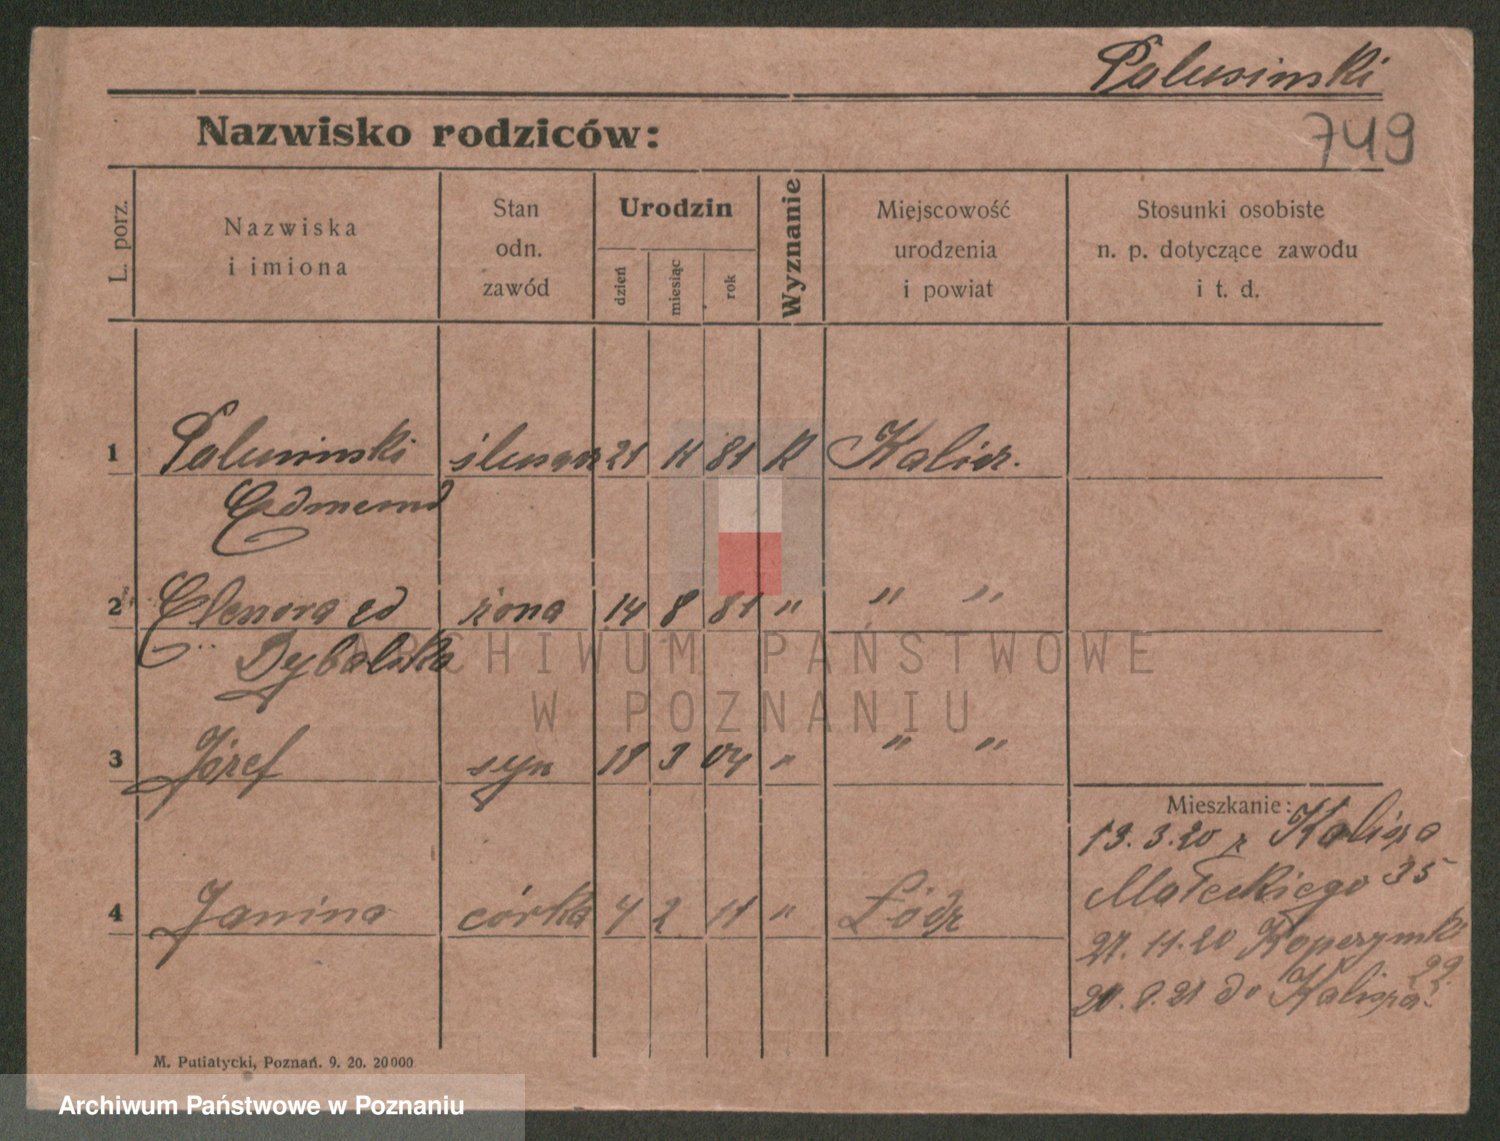 Palusinski
Nazwisko rodziców:
749
L. porz.
Nazwiska
i imiona
Stan
odn.
zawód
Urodzin
dzień
miesiąc
rok
Wyznanie
Miejscowość
urodzenia
i powiat
Stosunki osobiste
n. p. dotyczące zawodu
i t. d.
1 Palusinski ślusarz 21 11 81 R Kalisz.
Edmund
2 Elenora od żona 14 8 81 " " "
Dybalska
3 Józef syn 18 3 04 " " "
Mieszkanie:
13.3.20 z Kalisza
Małeckiego 35
4 Janina córka 4 2 11 " Łódz
27.11.20
22
20.8.21 do Kalisza
M. Putiatycki, Poznań. 9. 20. 20000
ARCHIWUM PAŃSTWOWE
W POZNANIU
Archiwum Państwowe w Poznaniu